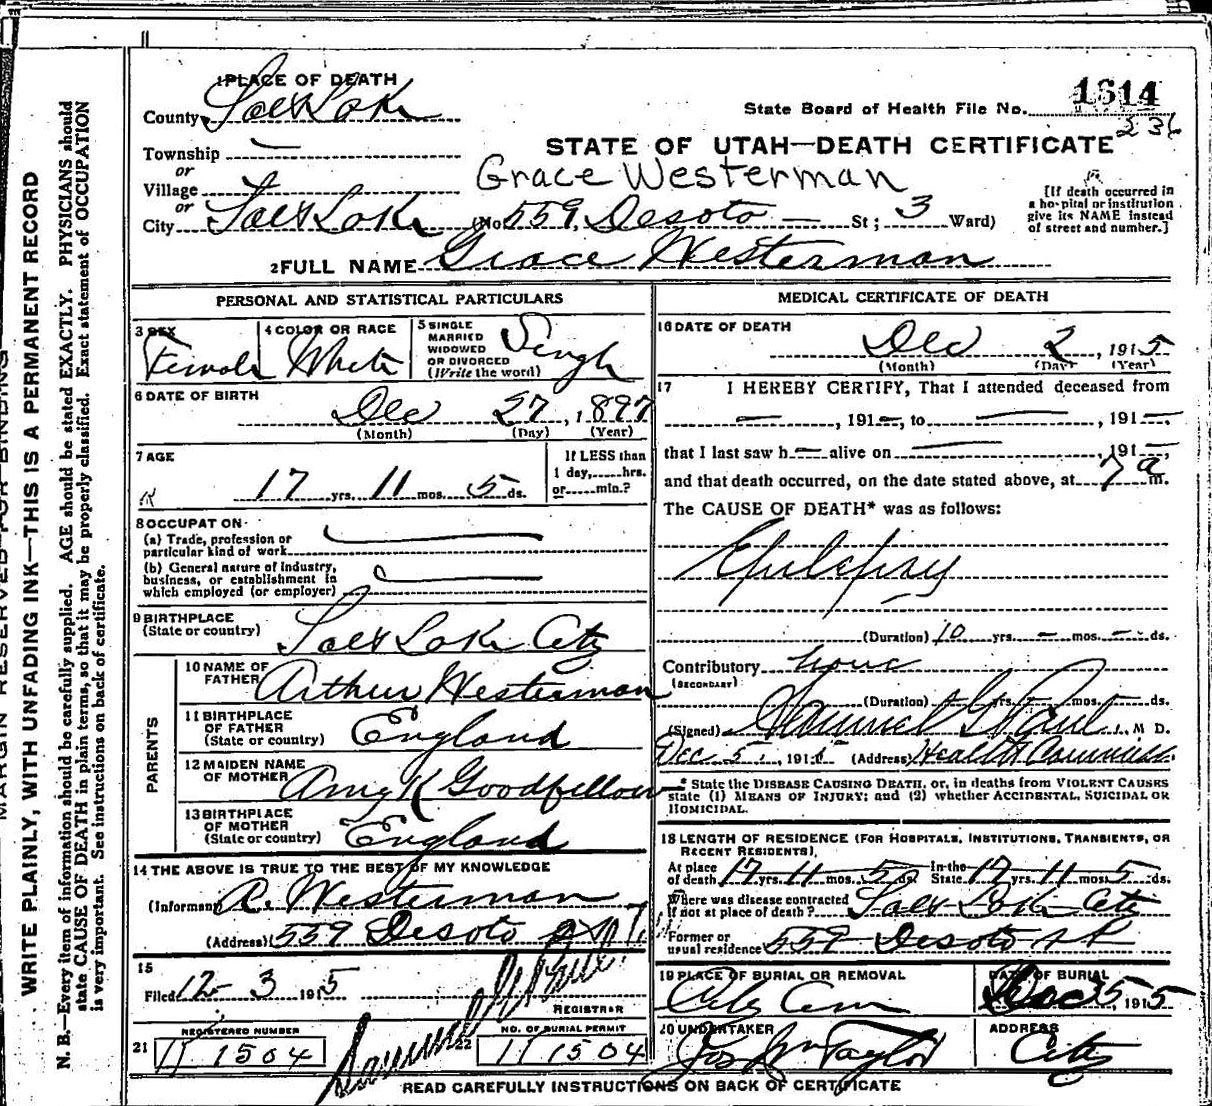 1 PLACE OF DEATH
County Salt Lake
State Board of Health File No. 1614
236
Township
or
STATE OF UTAH—DEATH CERTIFICATE
Village
or
Grace Westerman
City Salt Lake (No. 559, Desoto St; 3 Ward)
[If death occurred in
a hospital or institution
give its NAME instead
of street and number.]
2 FULL NAME Grace Westerman
PERSONAL AND STATISTICAL PARTICULARS
3 SEX
Female
4 COLOR OR RACE
White
5 SINGLE
MARRIED
WIDOWED
OR DIVORCED
(Write the word)
Single
6 DATE OF BIRTH
Dec 27, 1897
(Month) (Day) (Year)
7 AGE
17 yrs. 11 mos. 5 ds.
If LESS than
1 day,......hrs.
or......min.?
8 OCCUPATION
(a) Trade, profession or
particular kind of work
(b) General nature of industry,
business, or establishment in
which employed (or employer)
9 BIRTHPLACE
(State or country) Salt Lake City
PARENTS
10 NAME OF
FATHER Arthur Westerman
11 BIRTHPLACE
OF FATHER
(State or country) England
12 MAIDEN NAME
OF MOTHER Amy K Goodfellow
13 BIRTHPLACE
OF MOTHER
(State or country) England
14 THE ABOVE IS TRUE TO THE BEST OF MY KNOWLEDGE
(Informant) A. Westerman
(Address) 559 Desoto
15
Filed 12-3 1915
REGISTRAR
REGISTERED NUMBER
21 11504
NO. OF BURIAL PERMIT
22 11504
MEDICAL CERTIFICATE OF DEATH
16 DATE OF DEATH
Dec 2, 1915
(Month) (Day) (Year)
17 I HEREBY CERTIFY, That I attended deceased from
—, 191—, to —, 191—
that I last saw h— alive on —, 191—,
and that death occurred, on the date stated above, at 7 a m.
The CAUSE OF DEATH* was as follows:
Epilepsy
(Duration) 10 yrs. — mos. — ds.
Contributory none
(SECONDARY)
(Duration) — yrs. — mos. — ds.
(Signed) Samuel G. Paul, M D.
Dec 5, 1915 (Address) Health Commiss.
* State the DISEASE CAUSING DEATH, or, in deaths from VIOLENT CAUSES
state (1) MEANS OF INJURY; and (2) whether ACCIDENTAL, SUICIDAL OR
HOMICIDAL.
18 LENGTH OF RESIDENCE (FOR HOSPITALS, INSTITUTIONS, TRANSIENTS, OR
RECENT RESIDENTS).
At place
of death 17 yrs. 11 mos. 5 ds. In the
State 17 yrs. 11 mos. 5 ds.
Where was disease contracted
if not at place of death? Salt Lake City
Former or
usual residence 559 Desoto St
19 PLACE OF BURIAL OR REMOVAL
City Cem
DATE OF BURIAL
Dec 5 1915
20 UNDERTAKER
Jos Wm Taylor
ADDRESS
City
READ CAREFULLY INSTRUCTIONS ON BACK OF CERTIFICATE
MARGIN RESERVED FOR BINDING
WRITE PLAINLY, WITH UNFADING INK—THIS IS A PERMANENT RECORD
N. B.—Every item of information should be carefully supplied. AGE should be stated EXACTLY. PHYSICIANS should
state CAUSE OF DEATH in plain terms, so that it may be properly classified. Exact statement of OCCUPATION
is very important. See instructions on back of certificate.